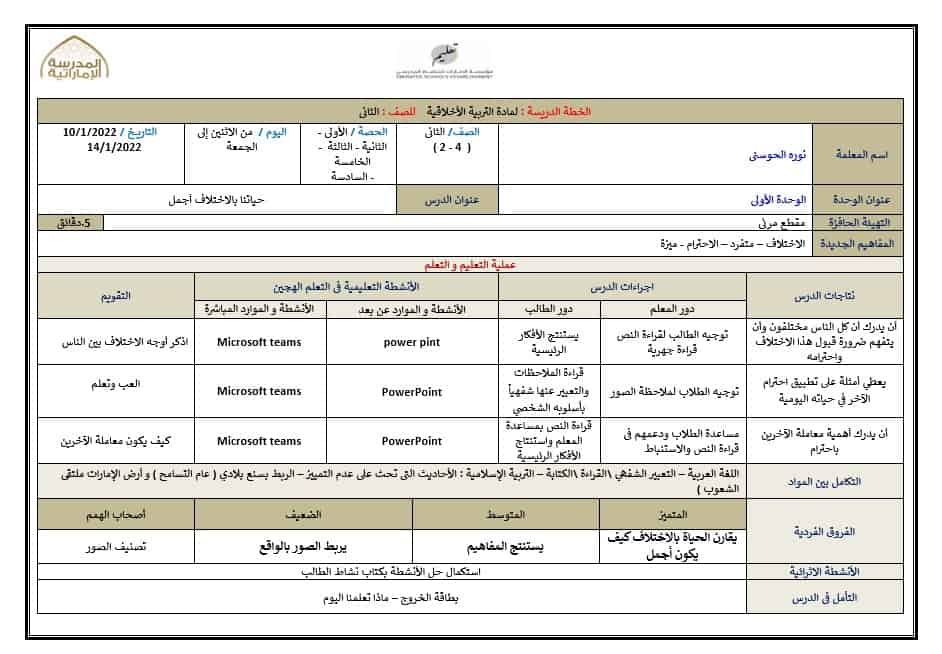 المدرسة
الإماراتية
تعليم
مؤسسة الإمارات للتعليم المدرسي
EMIRATES SCHOOLS ESTABLISHMENT
الخطة الدريسة : لمادة التربية الأخلاقية للصف : الثانى
اسم المعلمة
نوره الحوسنى
الصف/ الثانى
( 4 - 2 )
الحصة / الأولى -
الثانية - الثالثة -
الخامسة
- السادسة
اليوم / من الاثنين إلى
الجمعة
التاريخ / 10/1/2022
14/1/2022
عنوان الوحدة
الوحدة الأولى
عنوان الدرس
حياتنا بالاختلاف أجمل
التهيئة الحافزة
مقطع مرئى
5.دقائق
المفاهيم الجديدة
الاختلاف – متفرد – الاحترام - ميزة
عملية التعليم و التعلم
نتاجات الدرس
اجراءات الدرس
الأنشطة التعليمية فى التعلم الهجين
التقويم
دور المعلم
دور الطالب
الأنشطة و الموارد عن بعد
الأنشطة و الموارد المباشرة
أن يدرك أن كل الناس مختلفون وأن
يتفهم ضرورة قبول هذا الاختلاف
واحترامه
توجيه الطالب لقراءة النص
قراءة جهرية
يستنتج الأفكار
الرئيسية
power pint
Microsoft teams
اذكر أوجه الاختلاف بين الناس
يعطي أمثلة على تطبيق احترام
الآخر في حياته اليومية
توجيه الطلاب لملاحظة الصور
قراءة الملاحظات
والتعبير عنها شفهياً
بأسلوبه الشخصي
PowerPoint
Microsoft teams
العب وتعلم
أن يدرك أهمية معاملة الآخرين
باحترام
مساعدة الطلاب ودعمهم فى
قراءة النص والاستنباط
قراءة النص بمساعدة
المعلم واستنتاج
الأفكار الرئيسية
PowerPoint
Microsoft teams
كيف يكون معاملة الآخرين
التكامل بين المواد
اللغة العربية – التعبير الشفهي \القراءة \الكتابة – التربية الإسلامية : الأحاديث التى تحث على عدم التمييز – الربط بسنع بلادي ( عام التسامح ) و أرض الإمارات ملتقى
الشعوب )
الفروق الفردية
المتميز
المتوسط
الضعيف
أصحاب الهمم
يقارن الحياة بالاختلاف كيف
يكون أجمل
يستنتج المفاهيم
يربط الصور بالواقع
تصنيف الصور
الأنشطة الاثرائية
استكمال حل الأنشطة بكتاب نشاط الطالب
التأمل فى الدرس
بطاقة الخروج – ماذا تعلمنا اليوم